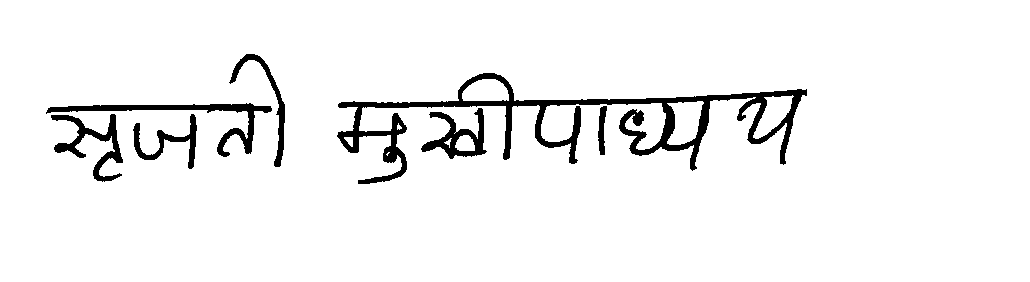 सृजती मुखीपाध्यय